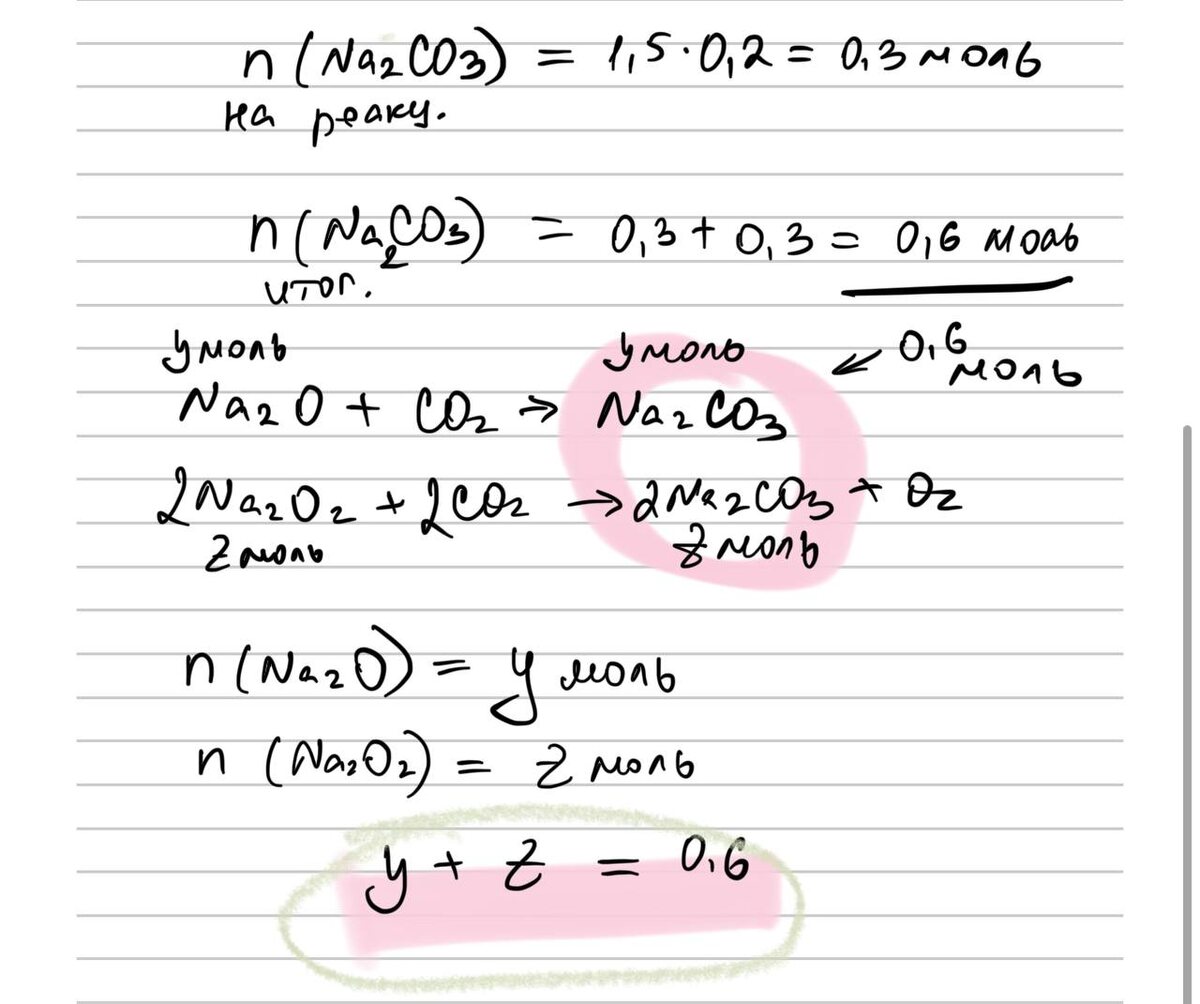 n (Na2CO3) = 1,5·0,2 = 0,3 моль
на реакц.
n (Na2CO3) = 0,3 + 0,3 = 0,6 моль
итог.
y моль y моль ↙ 0,6 моль
Na2O + CO2 → Na2CO3
2Na2O2 + 2CO2 → 2Na2CO3 + O2
z моль z моль
n (Na2O) = y моль
n (Na2O2) = z моль
y + z = 0,6